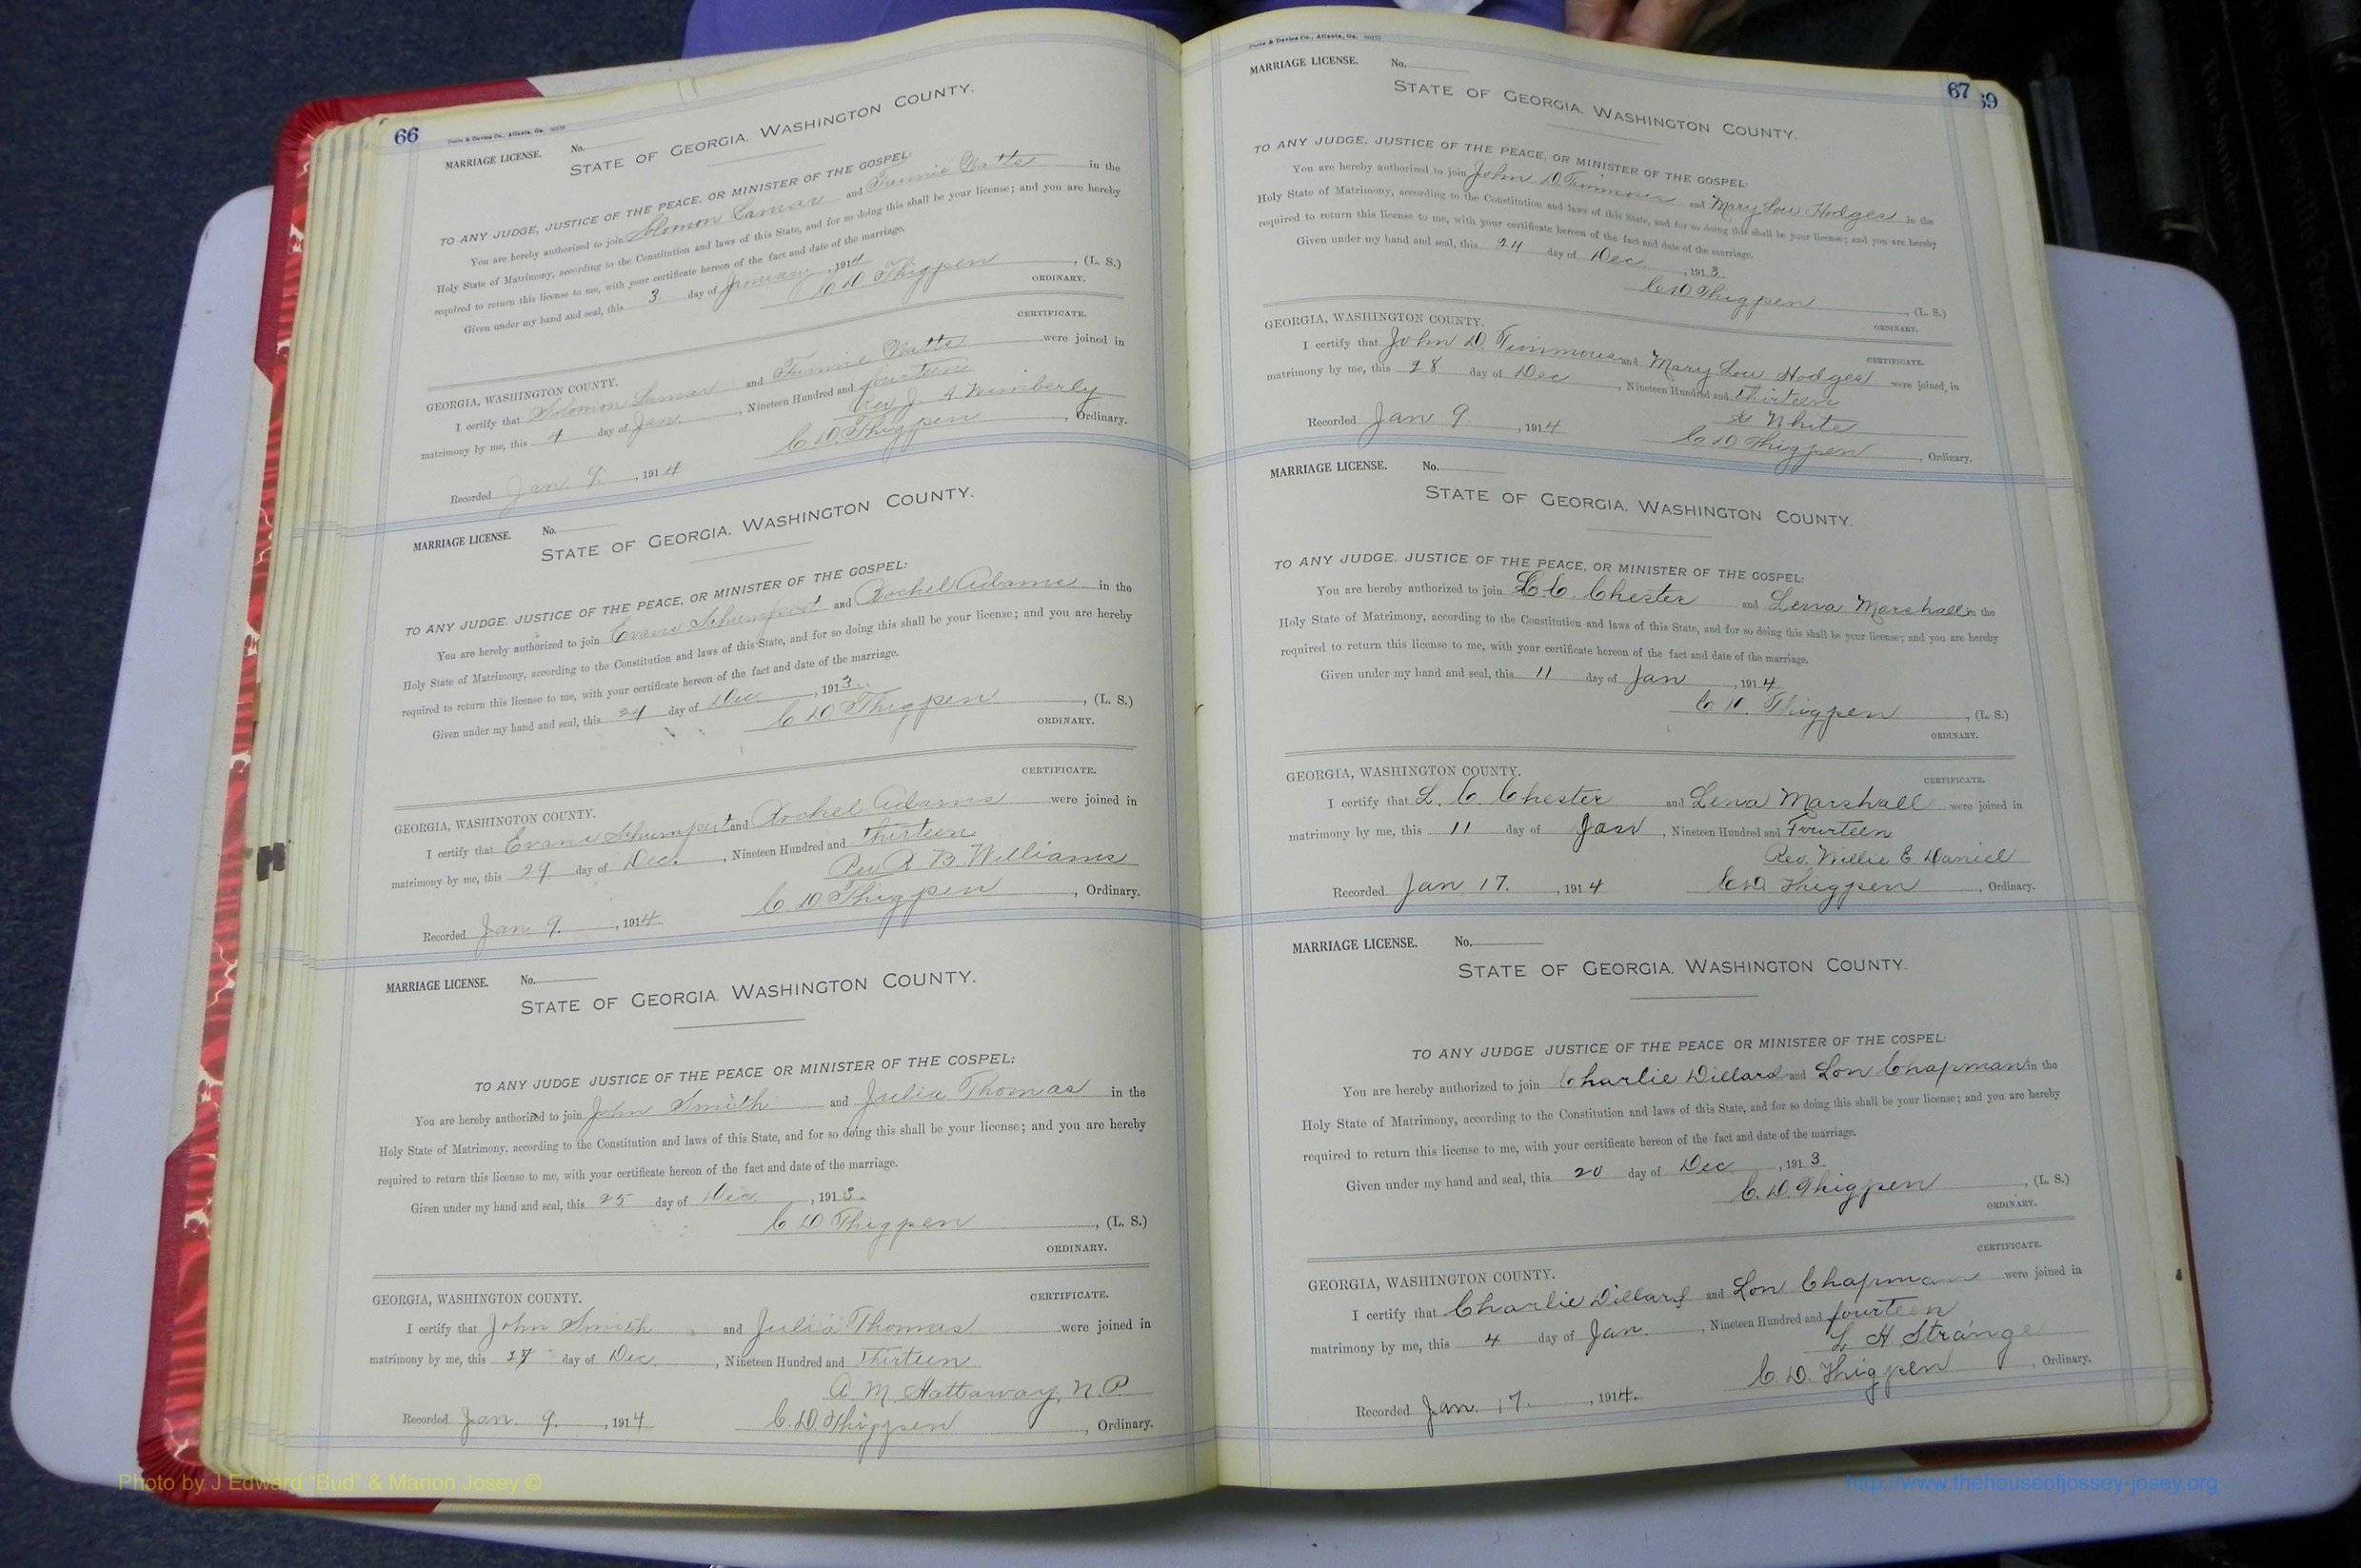 66
Foote & Davies Co., Atlanta, Ga.
MARRIAGE LICENSE. No.
STATE OF GEORGIA, WASHINGTON COUNTY.
TO ANY JUDGE, JUSTICE OF THE PEACE, OR MINISTER OF THE GOSPEL:
You are hereby authorized to join Solomon Lamar and Fannie Watts in the
Holy State of Matrimony, according to the Constitution and laws of this State, and for so doing this shall be your license; and you are hereby
required to return this license to me, with your certificate hereon of the fact and date of the marriage.
Given under my hand and seal, this 3 day of January, 1914
C D Thigpen, (L. S.)
ORDINARY.
CERTIFICATE.
GEORGIA, WASHINGTON COUNTY.
I certify that Solomon Lamar and Fannie Watts were joined in
matrimony by me, this 4 day of Jan., Nineteen Hundred and fourteen
Rev J A Wimberly
Recorded Jan 9, 1914 C. D. Thigpen, Ordinary.
MARRIAGE LICENSE. No.
STATE OF GEORGIA, WASHINGTON COUNTY.
TO ANY JUDGE, JUSTICE OF THE PEACE, OR MINISTER OF THE GOSPEL:
You are hereby authorized to join Evans Schumpert and Rochel Adams in the
Holy State of Matrimony, according to the Constitution and laws of this State, and for so doing this shall be your license; and you are hereby
required to return this license to me, with your certificate hereon of the fact and date of the marriage.
Given under my hand and seal, this 24 day of Dec, 1913.
C D Thigpen, (L. S.)
ORDINARY.
CERTIFICATE.
GEORGIA, WASHINGTON COUNTY.
I certify that Evans Schumpert and Rochel Adams were joined in
matrimony by me, this 29 day of Dec., Nineteen Hundred and Thirteen
Rev R B Williams
Recorded Jan 9., 1914 C D Thigpen, Ordinary.
MARRIAGE LICENSE. No.
STATE OF GEORGIA, WASHINGTON COUNTY.
TO ANY JUDGE JUSTICE OF THE PEACE OR MINISTER OF THE GOSPEL:
You are hereby authorized to join John Smith and Julia Thomas in the
Holy State of Matrimony, according to the Constitution and laws of this State, and for so doing this shall be your license; and you are hereby
required to return this license to me, with your certificate hereon of the fact and date of the marriage.
Given under my hand and seal, this 25 day of Dec, 1913.
C D Thigpen, (L. S.)
ORDINARY.
CERTIFICATE.
GEORGIA, WASHINGTON COUNTY.
I certify that John Smith and Julia Thomas were joined in
matrimony by me, this day of Dec., Nineteen Hundred and Thirteen
A. M. Hattaway, N. P.
Recorded Jan. 9., 1914 C. D. Thigpen, Ordinary.
67 69
Foote & Davies Co., Atlanta, Ga.
MARRIAGE LICENSE. No.
STATE OF GEORGIA, WASHINGTON COUNTY.
TO ANY JUDGE, JUSTICE OF THE PEACE, OR MINISTER OF THE GOSPEL:
You are hereby authorized to join John D Timmons and Mary Lou Hodges in the
Holy State of Matrimony, according to the Constitution and laws of this State, and for so doing this shall be your license; and you are hereby
required to return this license to me, with your certificate hereon of the fact and date of the marriage.
Given under my hand and seal, this 24 day of Dec, 1913
C D Thigpen, (L. S.)
ORDINARY.
CERTIFICATE.
GEORGIA, WASHINGTON COUNTY.
I certify that John D. Timmons and Mary Lou Hodges were joined in
matrimony by me, this 28 day of Dec, Nineteen Hundred and thirteen
White
Recorded Jan 9., 1914 C D Thigpen, Ordinary.
MARRIAGE LICENSE. No.
STATE OF GEORGIA, WASHINGTON COUNTY.
TO ANY JUDGE, JUSTICE OF THE PEACE, OR MINISTER OF THE GOSPEL:
You are hereby authorized to join L. C. Chester and Lena Marshall in the
Holy State of Matrimony, according to the Constitution and laws of this State, and for so doing this shall be your license; and you are hereby
required to return this license to me, with your certificate hereon of the fact and date of the marriage.
Given under my hand and seal, this 11 day of Jan, 1914
C. D. Thigpen, (L. S.)
ORDINARY.
CERTIFICATE.
GEORGIA, WASHINGTON COUNTY.
I certify that L. C. Chester and Lena Marshall were joined in
matrimony by me, this 11 day of Jan, Nineteen Hundred and Fourteen
Rev. Willie E. Daniel
Recorded Jan 17., 1914 C. D. Thigpen, Ordinary.
MARRIAGE LICENSE. No.
STATE OF GEORGIA, WASHINGTON COUNTY.
TO ANY JUDGE JUSTICE OF THE PEACE OR MINISTER OF THE GOSPEL:
You are hereby authorized to join Charlie Dillard and Lon Chapman in the
Holy State of Matrimony, according to the Constitution and laws of this State, and for so doing this shall be your license; and you are hereby
required to return this license to me, with your certificate hereon of the fact and date of the marriage.
Given under my hand and seal, this 20 day of Dec, 1913.
C. D. Thigpen, (L. S.)
ORDINARY.
CERTIFICATE.
GEORGIA, WASHINGTON COUNTY.
I certify that Charlie Dillard and Lon Chapman were joined in
matrimony by me, this 4 day of Jan., Nineteen Hundred and fourteen
L. H. Strange
Recorded Jan. 17., 1914. C. D. Thigpen, Ordinary.
Photo by J Edward "Bud" & Marion Josey ©
http://www.thehouseofjossey-josey.org